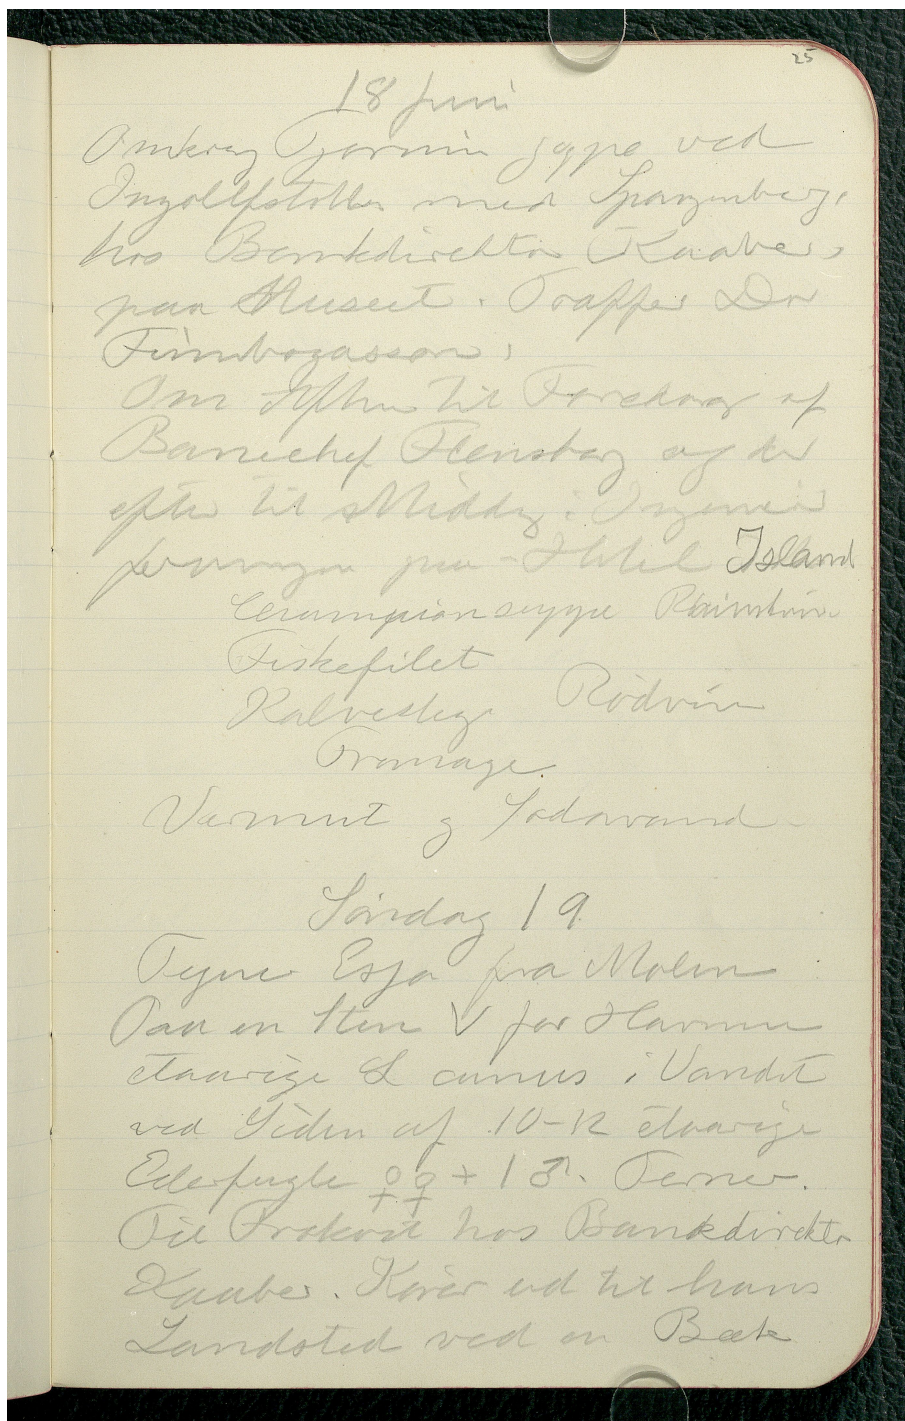 25
18 Juni
Omkring Tjörnin
ved
Ingolfstötten med Spangenberg,
hos Bankdirektör Kaaber,
paa Museet. Traffer Dr
Finnbogasson,
Om Aften til Foredrag af
Banechef Flensborg og der
efter til Middag i Ingeniör
foreningen paa Hotel Island
Championsuppe Rhinskvin
Fiskefilet
Kalvesteg Rödvin
Fromage.
Vermut og Sodavand
Söndag 19
Tegner Esja fra Molen
Paa en Sten V for Havnen
etaarige L canus i Vandet
ved Siden af 10-12 etaarige
Ederfugle ♀♀ + 1 ♂. Terner.
Til Frokost hos Bankdirektör
Kaaber. Körer ud til hans
Landsted ved en Bæk